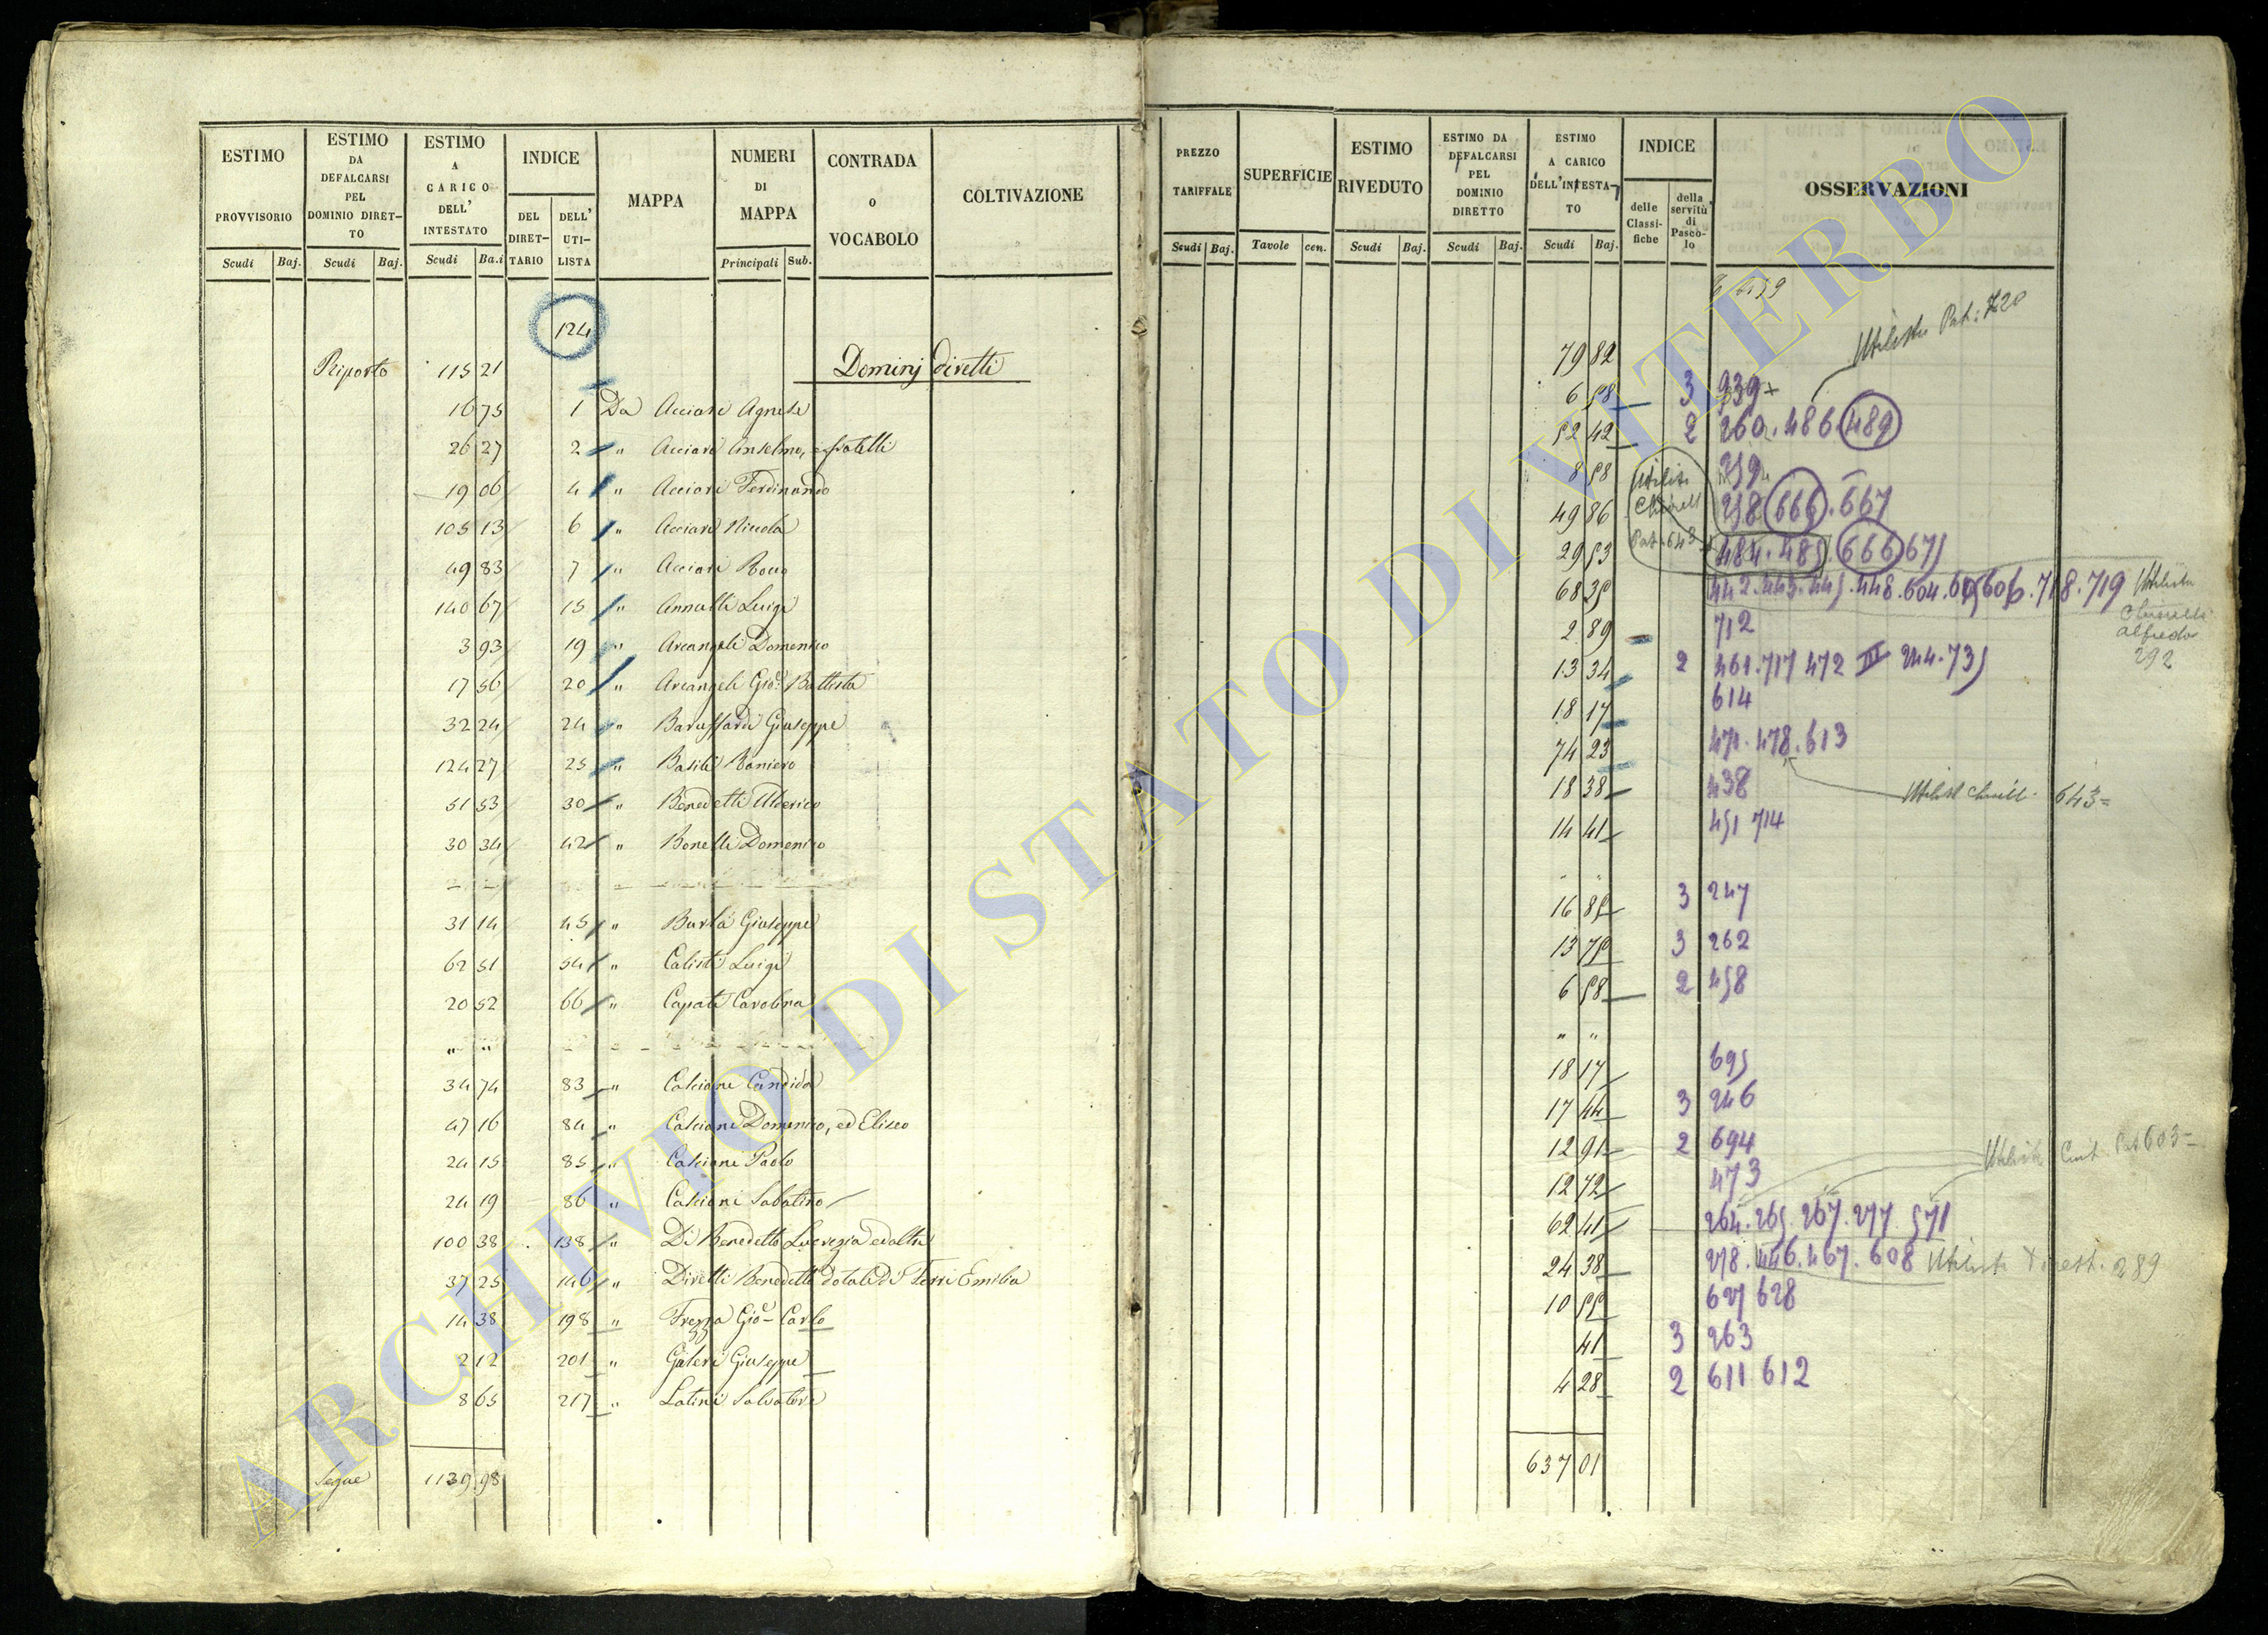 ESTIMO PROVVISORIO
Scudi Baj.
ESTIMO DA DEFALCARSI PEL DOMINIO DIRET-TO
Scudi Baj.
ESTIMO A CARICO DELL' INTESTATO
Scudi Ba.i
INDICE
DEL DIRET-TARIO
DELL' UTI-LISTA
MAPPA
NUMERI DI MAPPA
Principali Sub.
CONTRADA o VOCABOLO
COLTIVAZIONE
124
Riporto 115 21 Dominj diretti
16 75 1 Da Acciari Agnese
26 27 2 " Acciari Anselmo, e fratelli
19 06 4 " Acciari Ferdinando
105 13 6 " Acciari Niccola
49 83 7 " Acciari Rocco
140 67 15 " Annulli Luigi
3 93 19 " Arcangeli Domenico
17 56 20 " Arcangeli Gio. Battista
32 24 24 " Baruffardi Giuseppe
124 27 25 " Basili Raniero
51 53 30 " Benedetti Alderico
30 34 42 " Bonelli Domenico
31 14 45 " Burla Giuseppe
62 51 54 " Calisti Luigi
20 52 66 " Capati Carolina
" "
34 74 83 " Calcioni Candida
47 16 84 " Calcioni Domenico, ed Eliseo
24 15 85 " Calcioni Paolo
24 19 86 " Calcioni Sabatino
100 38 138 " Di Benedetto Lucrezia ed altri
37 25 146 " Diretti Benedetti dotali di Ferri Emilia
14 38 198 " Frezza Gio. Carlo
2 12 201 " Galeri Giuseppe
8 65 217 " Latini Salvatore
Segue 1139.98
PREZZO TARIFFALE
Scudi Baj.
SUPERFICIE
Tavole cen.
ESTIMO RIVEDUTO
Scudi Baj.
ESTIMO DA DEFALCARSI PEL DOMINIO DIRETTO
Scudi Baj.
ESTIMO A CARICO DELL'INTESTA-TO
Scudi Baj.
INDICE
delle Classi-fiche
della servitù di Pasco-lo
OSSERVAZIONI
Utilista Pat: 720
79 82
6 58 3 939+
52 42 2 260.486.489
8 58 259
49 86 258 666.667
29 53 484.485 666 675
68 35 442.443.445.448.604.605 606.718.719 Utilista
Chiorelli
Alfredo
292
2 89 712
13 34 2 461.717 472 III 244.735
18 17 614
74 23 471.478.613
18 38 438
643=
14 41 451 714
" "
16 85 3 247
13 75 3 262
6 58 2 458
" "
18 17 695
17 44 3 246
12 91 2 694
12 72 473
62 41 264.265.267.277.571
24 38 278.446.467.608
289
10 55 627 628
41 3 263
4 28 2 611 612
637 01
ARCHIVIO DI STATO DI VITERBO